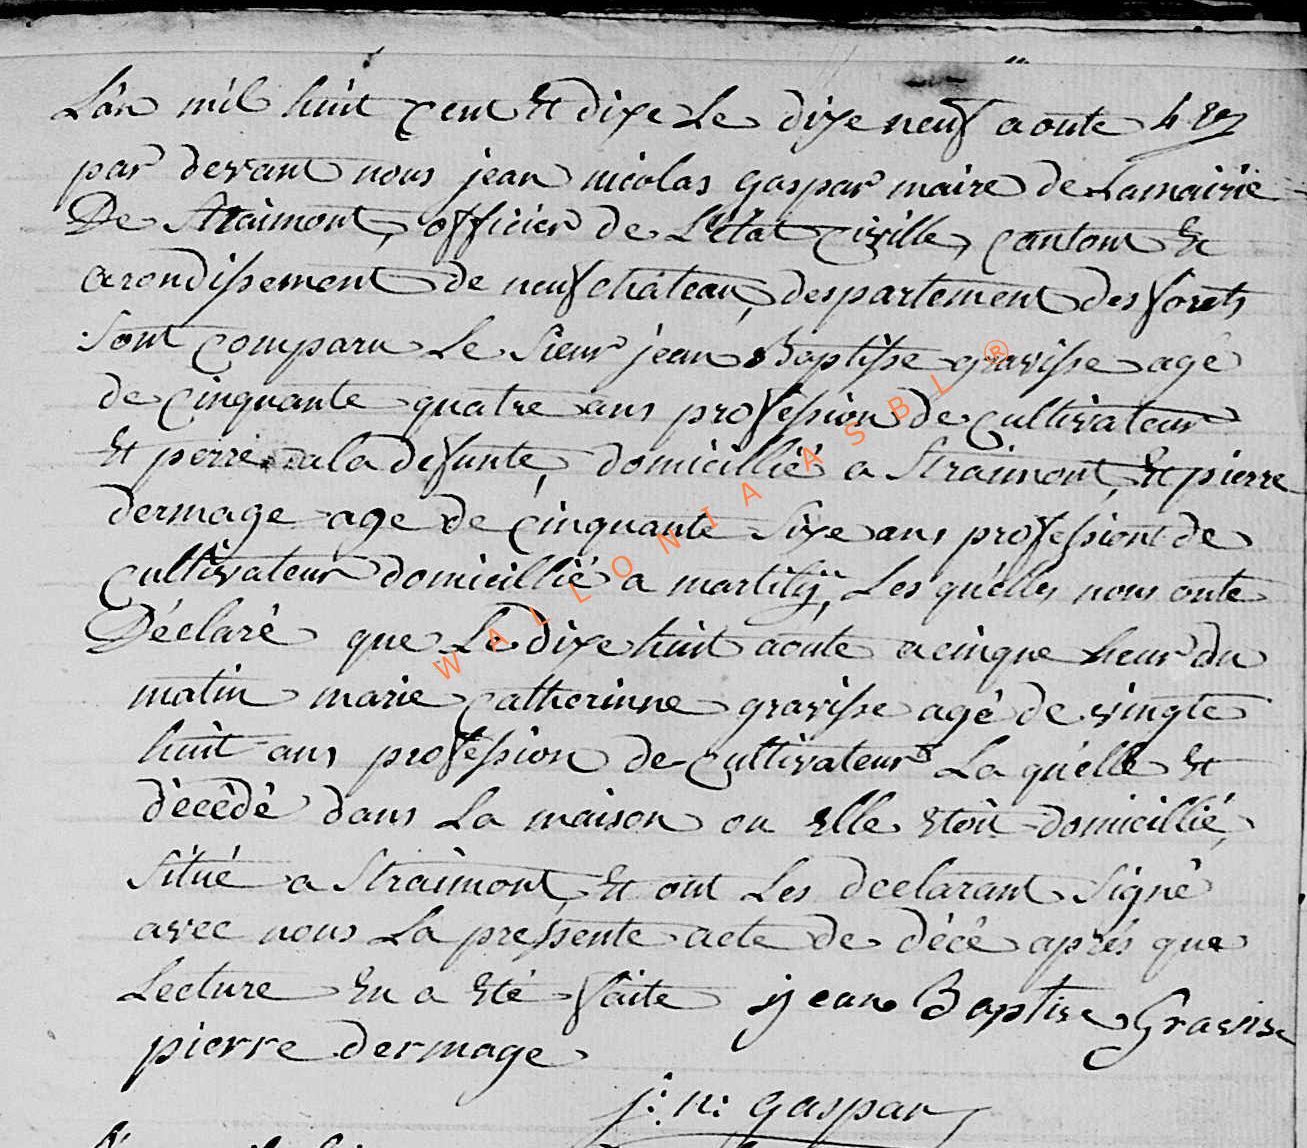 L'an mil huit cent Et dixe Le dixe neuf aoute
par devant nous jean nicolas gaspar maire de Lamairie
De Straimont, officier de L'état civille, cantont Et
arondissement de neufchateau, despartement des forets
Sont comparu Le Sieur jean Baptisse gravisse agé
de cinquante quatre ans profession de cultivateur
Et perre a la defunte, domicillié a Straimont, Et pierre
dermage age de cinquante Sixe ans professiont de
cultivateur domicillié a martilÿ, Les quélles nous onte
Déclaré que Le dixe huit aoute a cinque heur du
matin marie catherinne gravisse agé de vingte
huit ans profession de cultivateur La quélle Et
décédé dans La maison ou elle etoit domicillié,
Situé a Straimont, Et ont Les declarant Signé
avec nous La pressente acte de décé aprés que
Lecture En a Eté faite jean Baptise Gravise
pierre dermage
j: n: gaspar
WALLONIA ASBL ®